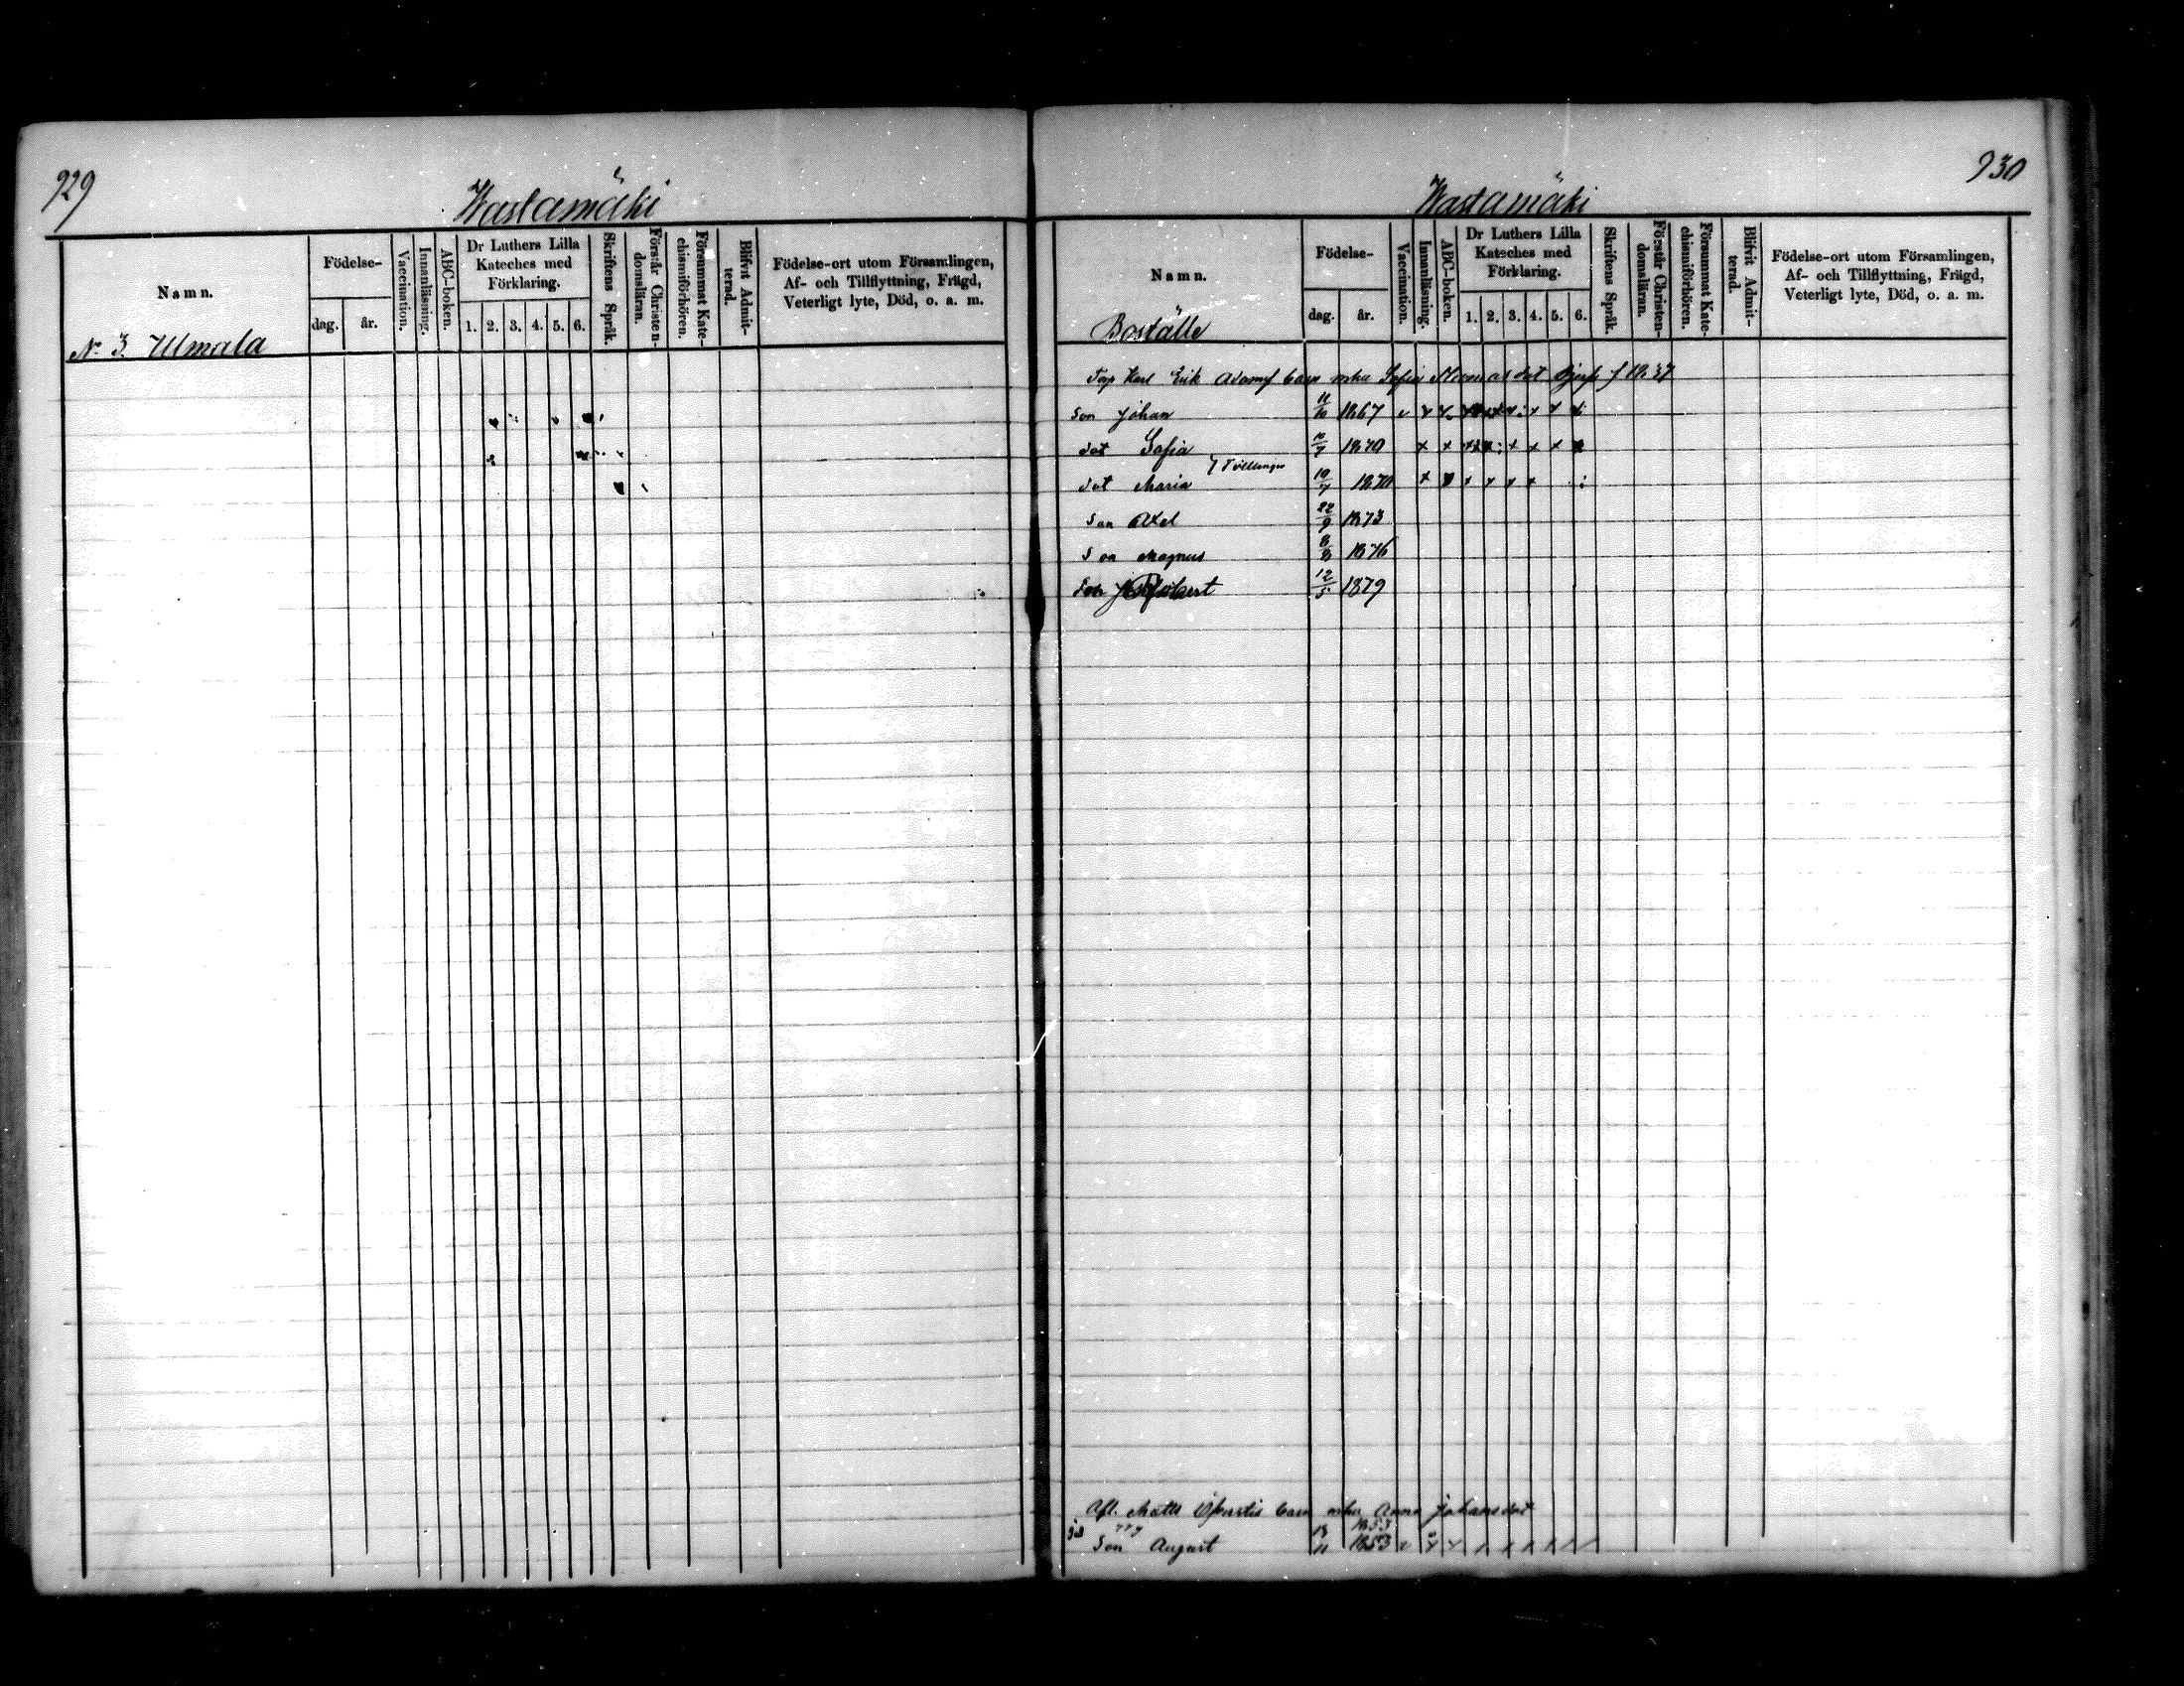 929
Wastamäki
Namn.
Födelse-
dag.
år.
Vaccination.
Innanläsning.
ABC-boken.
Dr Luthers Lilla
Kateches med
Förklaring.
1. 2. 3. 4. 5. 6.
Skriftens Språk.
Förstår Christen-
domsläran.
Försummat Kate-
chismiförhören.
Blifvit Admit-
terad.
Födelse-ort utom Församlingen,
Af- och Tillflyttning, Frägd,
Veterligt lyte, Död, o. a. m.
No 3. Ulmala
930
Wastamäki
Namn.
Födelse-
dag.
år.
Vaccination.
Innanläsning.
ABC-boken.
Dr Luthers Lilla
Kateches med
Förklaring.
1. 2. 3. 4. 5. 6.
Skriftens Språk.
Förstår Christen-
domsläran.
Försummat Kate-
chismiförhören.
Blifvit Admit-
terad.
Födelse-ort utom Församlingen,
Af- och Tillflyttning, Frägd,
Veterligt lyte, Död, o. a. m.
Boställe
Torp Karl Erik Adamss barn mdra Sofia f 1837
Son Johan 11/10 1867
dot Sofia 10/7 1870
Tvillingar
dot Maria 10/7 1870
Son Axel 22/9 1873
Son Magnus 8/8 1876
Son 12/5 1879
Afl. Matts barn Anna Johansdot
1853
Son August 13/11 1853